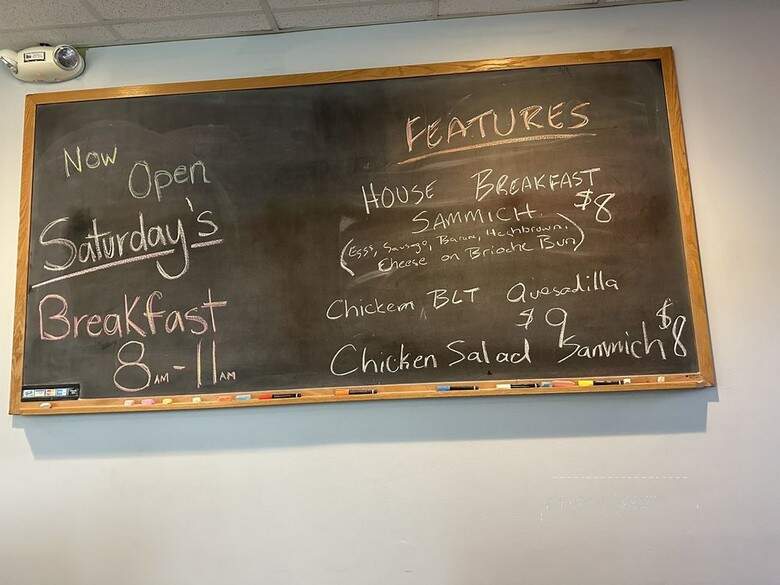 Now Open
Saturday's
Breakfast
8 AM - 11 AM
FEATURES
HOUSE BREAKFAST
SAMMICH $8
(Eggs, Sausage, Bacon, Hashbrown,
Cheese on Brioche Bun)
Chicken BLT Quesadilla
$9
Chicken Salad Sammich $8